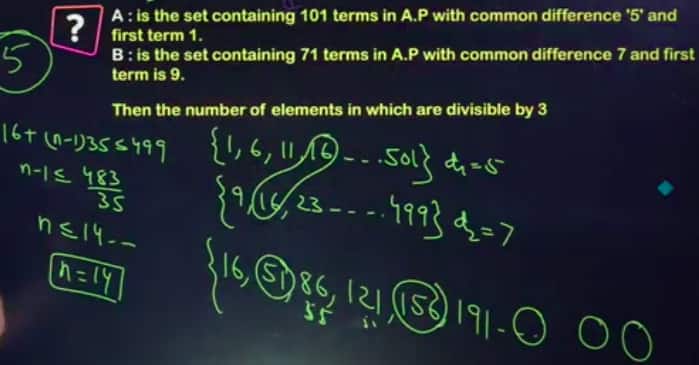 ? A : is the set containing 101 terms in A.P with common difference '5' and
first term 1.
B : is the set containing 71 terms in A.P with common difference 7 and first
term is 9.
Then the number of elements in which are divisible by 3
5
16+(n-1)35≤499
n-1≤ 483/35
n≤14--
n=14
{1, 6, 11, 16 - - - . 501} d₁=5
{9, 16, 23 - - - - . 499} d₂=7
{16, 51, 86, 121, 156, 191 - O O O
35